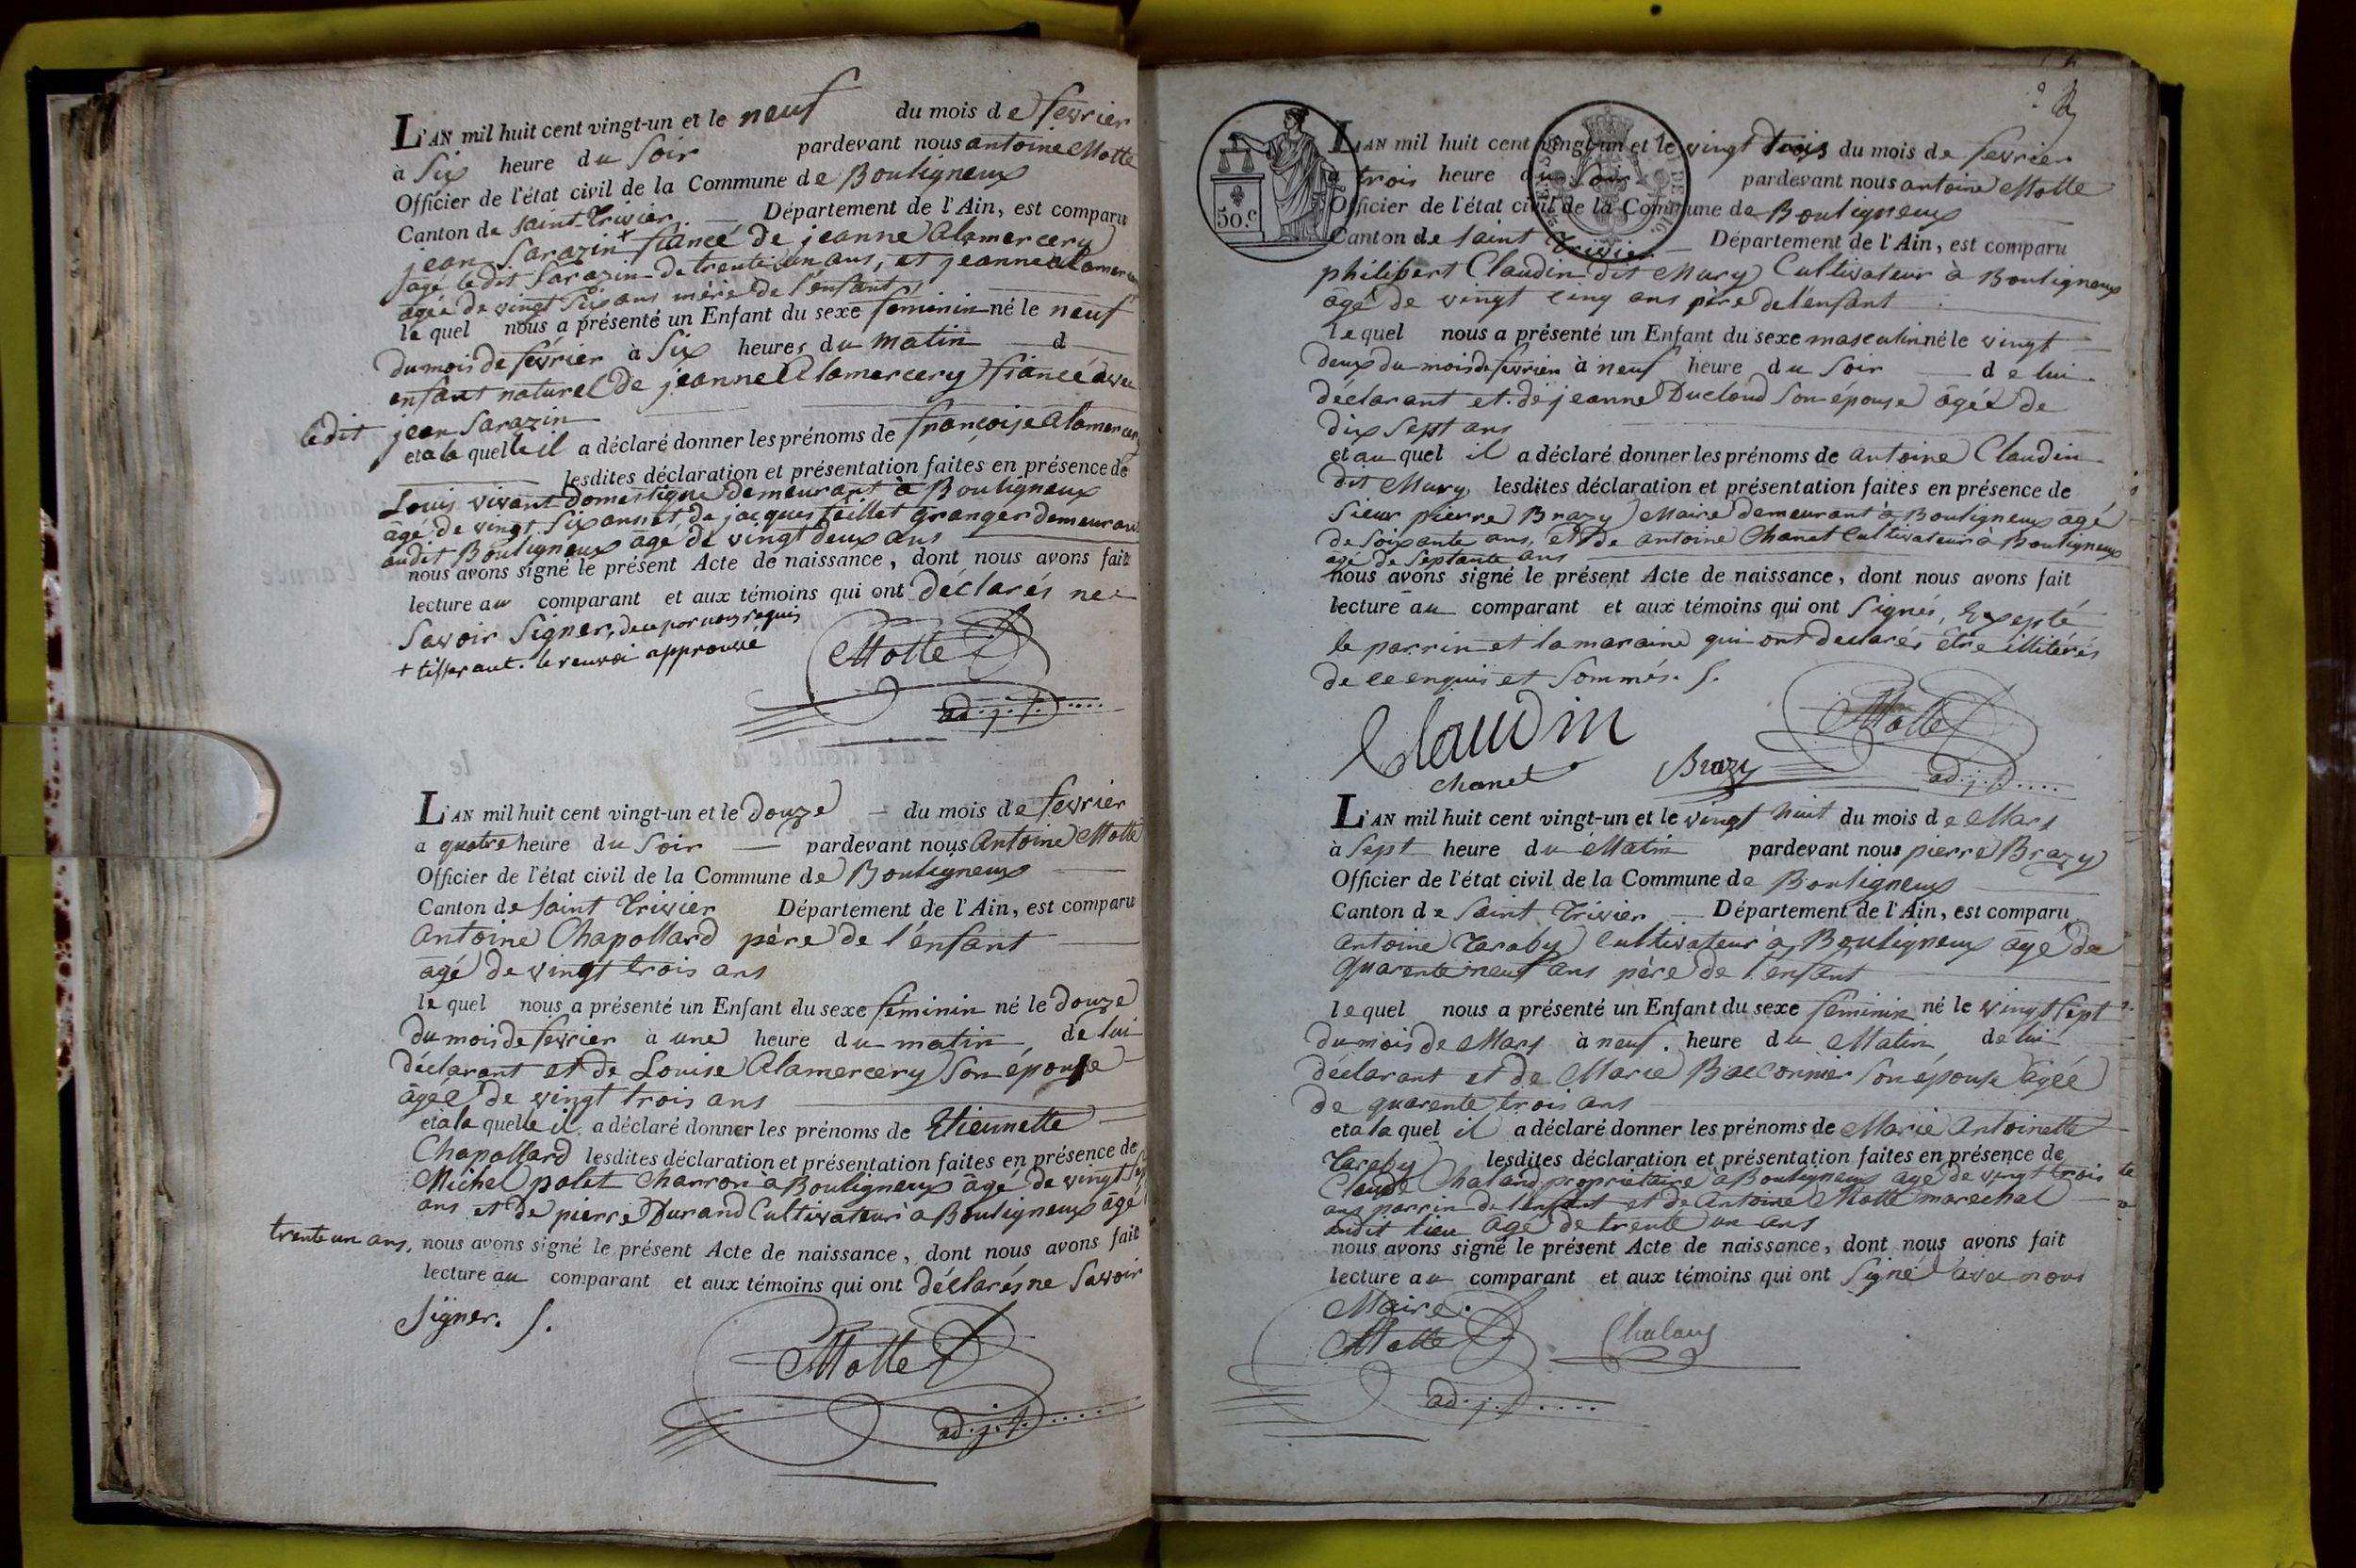 L'AN mil huit cent vingt-un et le neuf du mois de fevrier
à Six heure du Soir pardevant nous antoine Motte
Officier de l'état civil de la Commune de Bouligneux
Canton de saint Trivier Département de l'Ain, est comparu
jean Sarazin + fiancé de jeanne Alamercery
agé ledit Sarazin de trente un ans, et jeanne alamercery
agée de vingt Six ans mére de l'enfant
le quel nous a présenté un Enfant du sexe feminin né le neuf
du mois de fevrier à Six heures du matin d
enfant naturel de jeanne Alamercery fiancé avec
ledit jean Sarazin
et a la quelle il a déclaré donner les prénoms de françoise alamercery
lesdites déclaration et présentation faites en présence de
Louis vivant domestique demeurant à Bouligneux
âgé de vingt Six ans et de jacques feillet granger demeurant
audit Bouligneux agé de vingt deux ans
nous avons signé le présent Acte de naissance, dont nous avons fait
lecture au comparant et aux témoins qui ont déclarés ne
Savoir Signer, de ce par nous requis
+ tisserant. le renvoi approuvé
Motte
ad. j. t.....
L'AN mil huit cent vingt-un et le douze du mois de fevrier
a quatre heure du Soir pardevant nous Antoine Motte
Officier de l'état civil de la Commune de Bouligneux
Canton de saint Trivier Département de l'Ain, est comparu
Antoine Chapollard père de l'énfant
âgé de vingt trois ans
le quel nous a présenté un Enfant du sexe féminin né le douze
du mois de fevrier a une heure du matin, de lui
déclarant et de Louise Alamercery Son épouse
âgéé de vingt trois ans
et a la quelle il a déclaré donner les prénoms de Etiennette
Chapollard lesdites déclaration et présentation faites en présence de
Michel polet Charron à Bouligneux âgé de vingt
ans et de pierre Durand Cultivateur à Bouligneux âgé
trente un ans, nous avons signé le présent Acte de naissance, dont nous avons fait
lecture au comparant et aux témoins qui ont déclarés ne Savoir
Signer. f.
Motte
ad. j. t.....
50.c
L'AN mil huit cent vingt-un et le vingt trois du mois de fevrier
à trois heure du Soir pardevant nous antoine Motte
Officier de l'état civil de la Commune de Bouligneux
Canton de saint Trivier Département de l'Ain, est comparu
philibert Claudin dit Mury Cultivateur à Bouligneux
âgé de vingt cinq ans père de l'énfant
le quel nous a présenté un Enfant du sexe masculin né le vingt
deux du mois de fevrier à neuf heure du Soir de lui
déclarant et de jeanne Ducloud Son épouse âgéé de
dix Sept ans
et au quel il a déclaré donner les prénoms de antoine Claudin
dit Mury lesdites déclaration et présentation faites en présence de
Sieur pierre Brazy Maire demeurant à Bouligneux agé
de Soixante ans, et de antoine Chanet Cultivateur à Bouligneux
agé de Septante ans
nous avons signé le présent Acte de naissance, dont nous avons fait
lecture au comparant et aux témoins qui ont Signés, Exepté
le parrin et la maraine qui ont declarés être illitérés
de ce enquis et Sommés. f.
Claudin
Motte
Chanet
Brazy
ad. j. t.....
L'AN mil huit cent vingt-un et le vingt huit du mois de Mars
à Sept heure du Matin pardevant nous pierre Brazy
Officier de l'état civil de la Commune de Bouligneux
Canton de Saint Trivier Département de l'Ain, est comparu
Antoine Taraby Cultivateur à Bouligneux âgé de
quarente neuf ans père de l'enfant
le quel nous a présenté un Enfant du sexe féminin né le vingt Sept
du mois de Mars à neuf. heure du Matin de lui
déclarant et de Marie Bacconnier Son épouse âgéé
de quarente trois ans
et a la quel il a déclaré donner les prénoms de Marie Antoinette
Taraby lesdites déclaration et présentation faites en présence de
Claude Chaland propriétaire à Bouligneux agé de vingt trois
ans parrin de l'enfant et de Antoine Motte marechal
audit lieu âgé de trente un ans
nous avons signé le présent Acte de naissance, dont nous avons fait
lecture au comparant et aux témoins qui ont Signé avec nous
Maire.
Motte
Chaland
ad. j. t.....